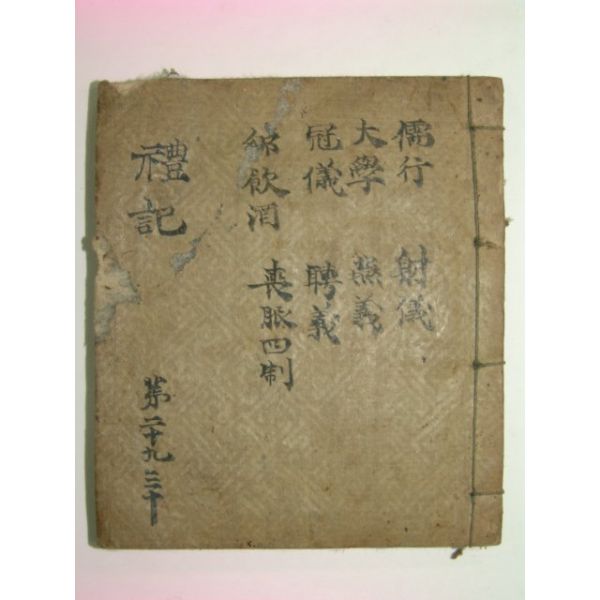 儒行 射儀
大學 燕義
冠儀 聘義
鄕飮酒 喪服四制
禮記
第二十九 三十